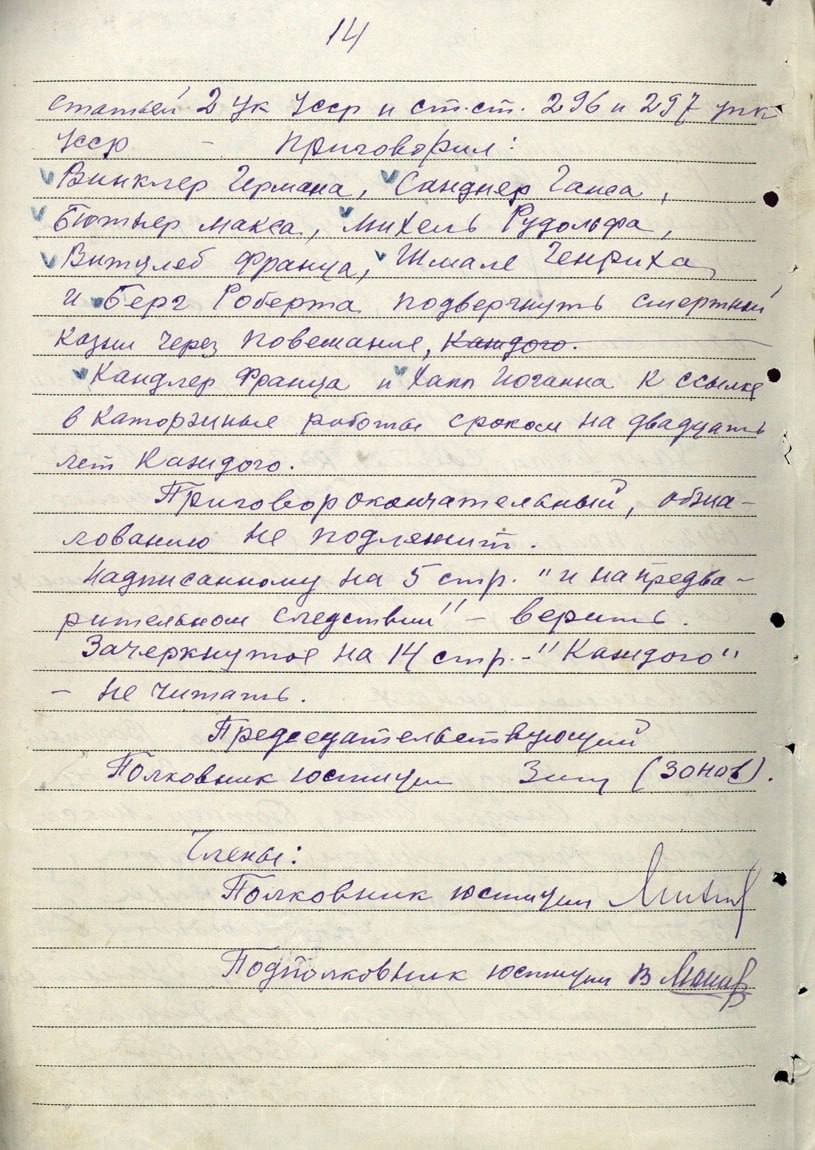 14
статьей 2 Ук Усср и ст.ст. 296 и 297 упк
Усср - Приговорил:
Винклер Германа, Санднер Ганса,
Бютнер Макса, Михель Рудольфа,
Витцлеб Франца, Шмале Генриха
и Берг Роберта подвергнуть смертной
казни через повешание, каждого.
Кандлер Франца и Хапп Иоганна к ссылке
в каторжные работы сроком на двадцать
лет каждого.
Приговор окончательный, обжа-
лованию не подлежит.
Надписанному на 5 стр. "и на предва-
рительном следствии" - верить.
Зачеркнутое на 14 стр. - "Каждого"
- не читать.
Председательствующий
Полковник юстиции (Зонов).
Члены:
Полковник юстиции
Подполковник юстиции В